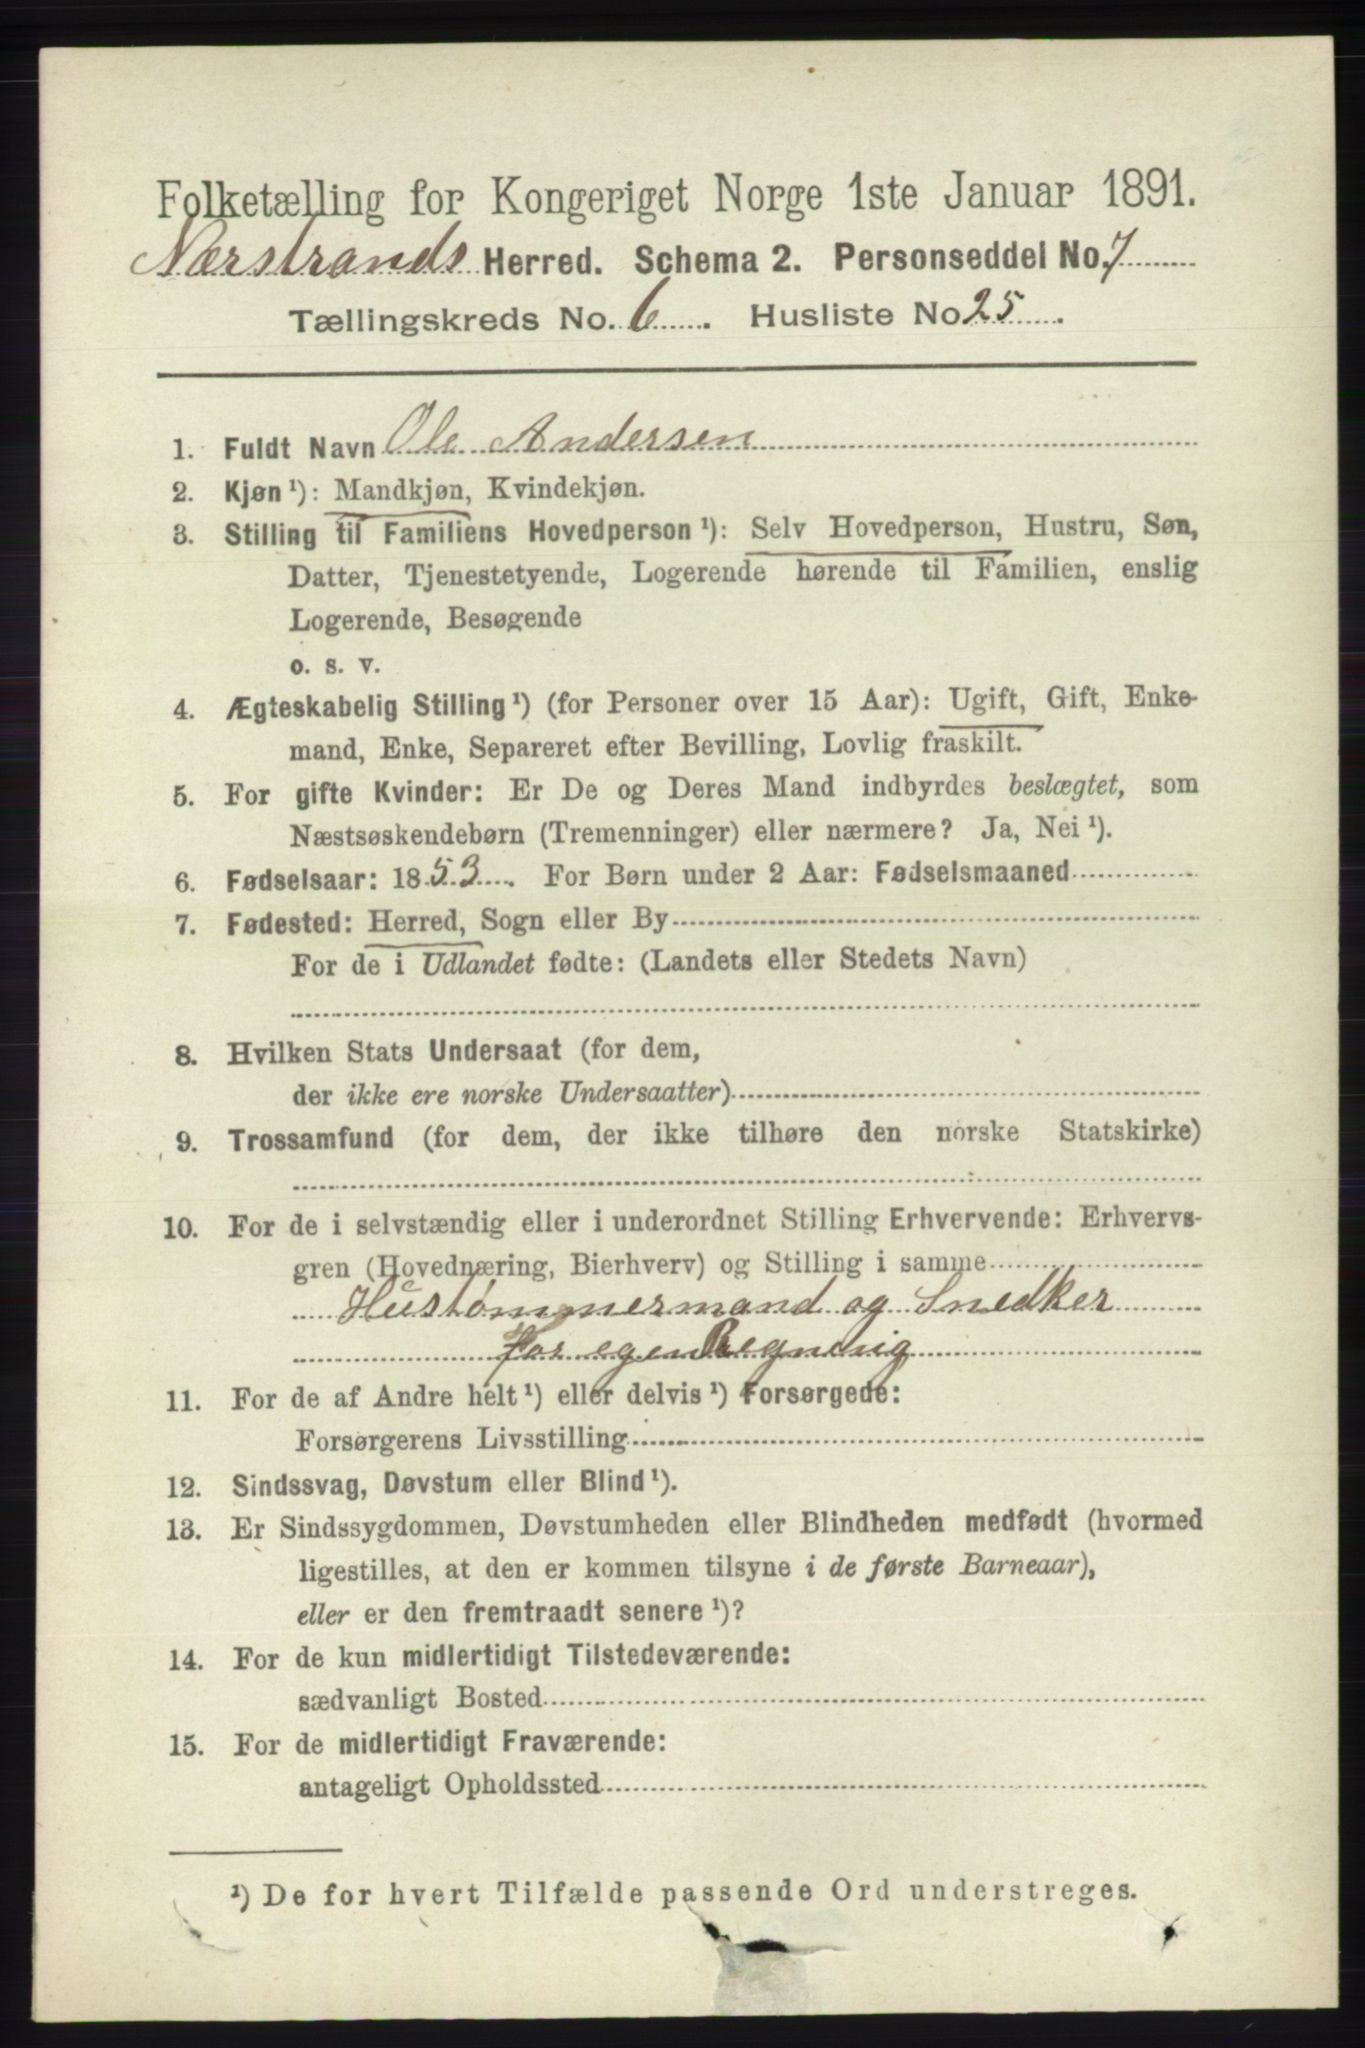 Folketælling for Kongeriget Norge 1ste Januar 1891.
Nærstrands Herred. Schema 2. Personseddel No. 7
Tællingskreds No. 6. Husliste No 25.
1. Fuldt Navn Ole Andersen
2. Kjøn ¹): Mandkjøn, Kvindekjøn.
3. Stilling til Familiens Hovedperson ¹): Selv Hovedperson, Hustru, Søn,
Datter, Tjenestetyende, Logerende hørende til Familien, enslig
Logerende, Besøgende
o. s. v.
4. Ægteskabelig Stilling ¹) (for Personer over 15 Aar): Ugift, Gift, Enke-
mand, Enke, Separeret efter Bevilling, Lovlig fraskilt.
5. For gifte Kvinder: Er De og Deres Mand indbyrdes beslægtet, som
Næstsøskendebørn (Tremenninger) eller nærmere? Ja, Nei ¹).
6. Fødselsaar: 1853. For Børn under 2 Aar: Fødselsmaaned
7. Fødested: Herred, Sogn eller By
For de i Udlandet fødte: (Landets eller Stedets Navn)
8. Hvilken Stats Undersaat (for dem,
der ikke ere norske Undersaatter)
9. Trossamfund (for dem, der ikke tilhøre den norske Statskirke)
10. For de i selvstændig eller i underordnet Stilling Erhvervende: Erhvervs-
gren (Hovednæring, Bierhverv) og Stilling i samme
Hustømmermand og Snedker
for egen Regning
11. For de af Andre helt ¹) eller delvis ¹) Forsørgede:
Forsørgerens Livsstilling
12. Sindssvag, Døvstum eller Blind ¹).
13. Er Sindssygdommen, Døvstumheden eller Blindheden medfødt (hvormed
ligestilles, at den er kommen tilsyne i de første Barneaar),
eller er den fremtraadt senere ¹)?
14. For de kun midlertidigt Tilstedeværende:
sædvanligt Bosted
15. For de midlertidigt Fraværende:
antageligt Opholdssted
¹) De for hvert Tilfælde passende Ord understreges.